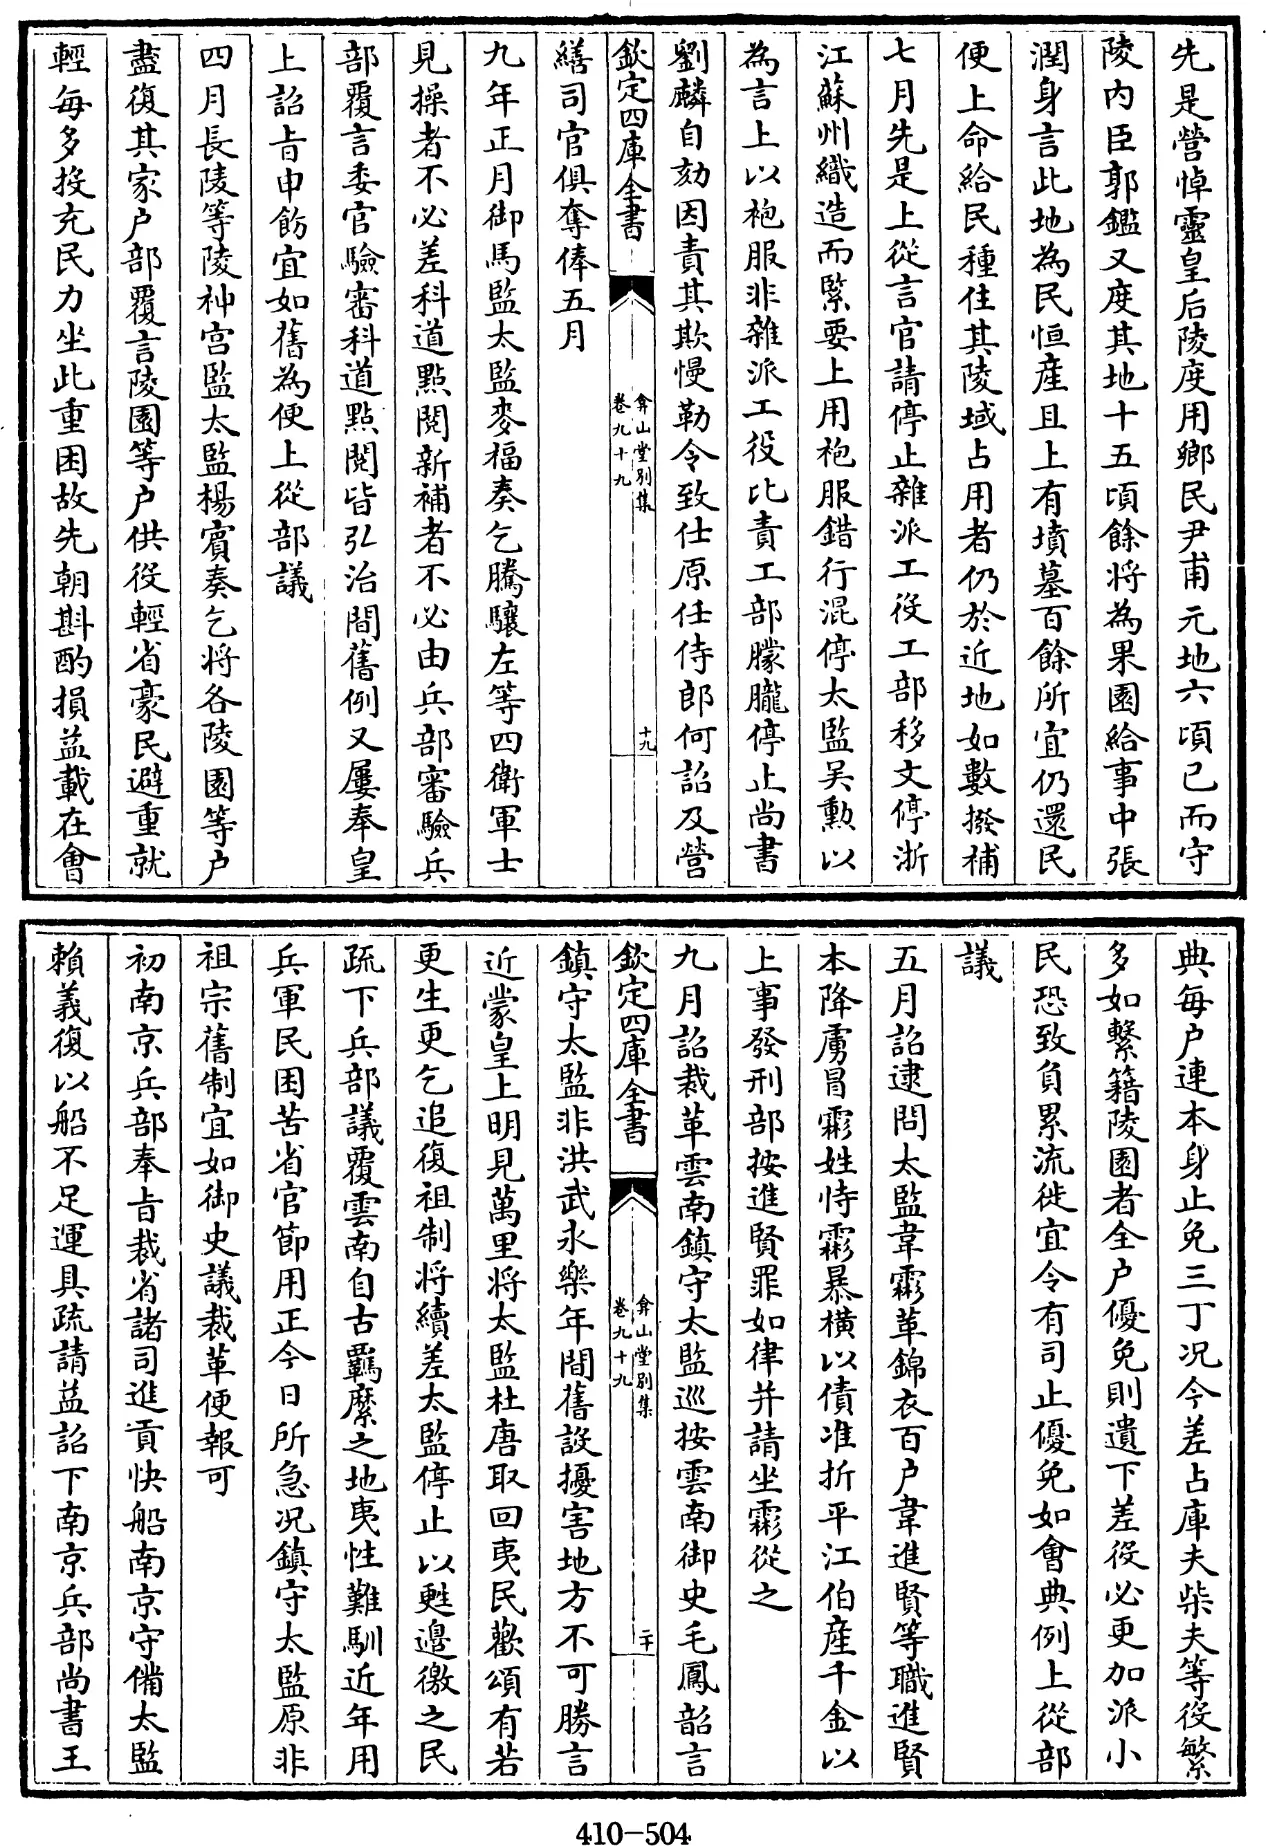 先是營悼靈皇后陵度用鄉民尹甫元地六頃已而守
陵内臣郭鑑又度其地十五頃餘將為果園給事中張
潤身言此地為民恒産且上有墳墓百餘所宜仍還民
便上命給民種住其陵域占用者仍於近地如數撥補
七月先是上從言官請停止雜派工役工部移文停浙
江蘇州織造而緊要上用袍服錯行混停太監吴勲以
為言上以袍服非雜派工役比責工部朦朧停止尚書
劉麟自劾因責其欺慢勒令致仕原任侍郎何詔及營
欽定四庫全書
弇山堂别集
卷九十九
十九
繕司官俱奪俸五月
九年正月御馬監太監麥福奏乞騰驤左等四衛軍士
見操者不必差科道點閱新補者不必由兵部審驗兵
部覆言委官驗審科道點閱皆弘治間舊例又屢奉皇
上詔㫖申飭宜如舊為便上從部議
四月長陵等陵神宫監太監楊賓奏乞将各陵園等户
盡復其家户部覆言陵園等户供役輕省豪民避重就
輕每多投充民力坐此重困故先朝斟酌損益載在會
典每户連本身止免三丁况今差占庫夫柴夫等役繁
多如繫籍陵園者全户優免則遺下差役必更加派小
民恐致負累流徙宜令有司止優免如會典例上從部
議
五月詔逮問太監韋霦革錦衣百户韋進賢等職進賢
本降虜冒霦姓恃霦暴橫以債准折平江伯産千金以
上事發刑部按進賢罪如律并請坐霦從之
九月詔裁革雲南鎮守太監巡按雲南御史毛鳳韶言
欽定四庫全書
弇山堂别集
卷九十九
二十
鎮守太監非洪武永樂年間舊設擾害地方不可勝言
近蒙皇上明見萬里將太監杜唐取回夷民歡頌有若
更生更乞追復祖制將續差太監停止以甦邉徼之民
疏下兵部議覆雲南自古羈縻之地夷性難馴近年用
兵軍民困苦省官節用正今日所急况鎮守太監原非
祖宗舊制宜如御史議裁革便報可
初南京兵部奉㫖裁省諸司進貢快船南京守備太監
賴義復以船不足運具疏請益詔下南京兵部尚書王
410-504